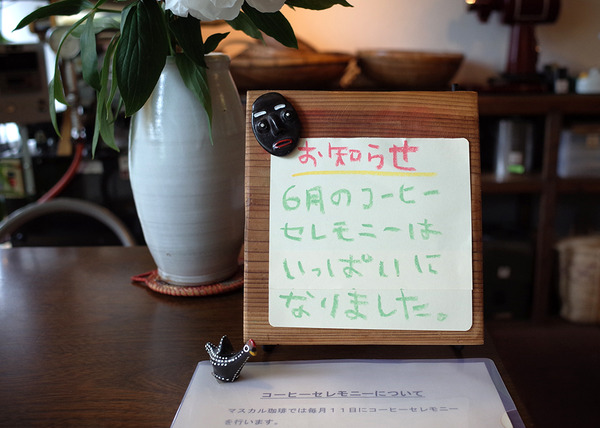 お知らせ
6月のコーヒー
セレモニーは
いっぱいに
なりました。
コーヒーセレモニーについて
マスカル珈琲では毎月11日にコーヒーセレモニー
を行います。